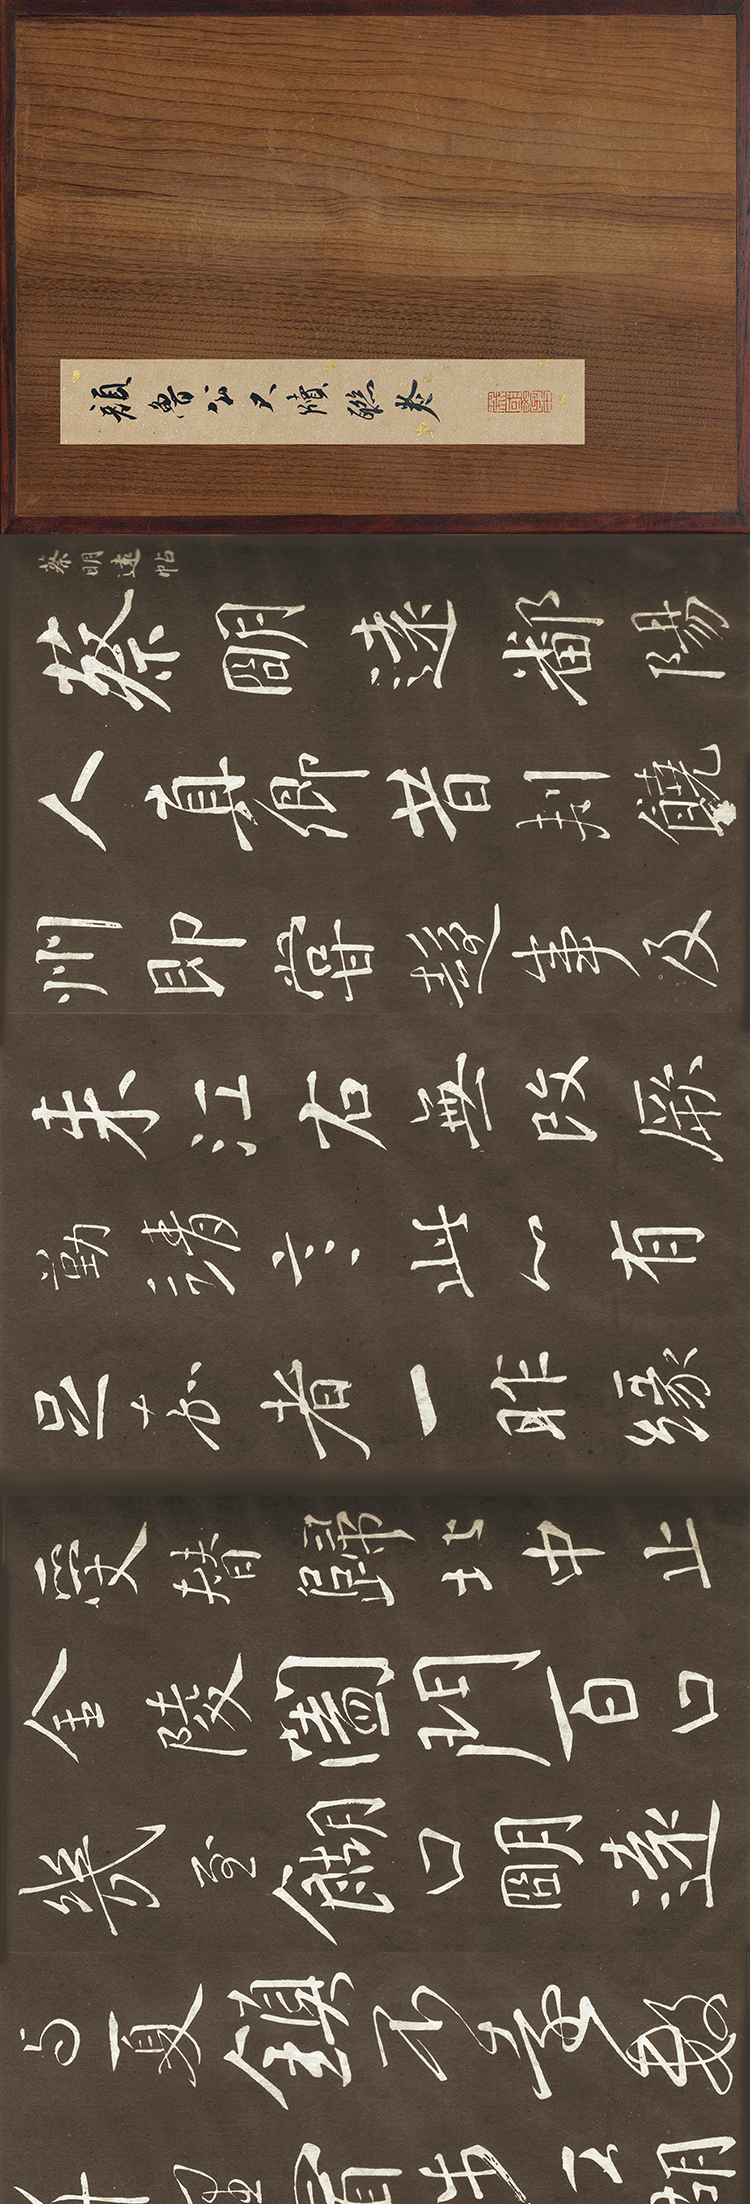 顏魯公尺牘聯
蔡明遠帖
蔡明遠鄱陽
人真卿昔刺饒
州即嘗趨事及
來江右無改厥
勤靖言此心有
足嘉者一昨緣
受替歸北中止
金陵闔門百口
幾至餬口明遠
与夏鎮不遠數